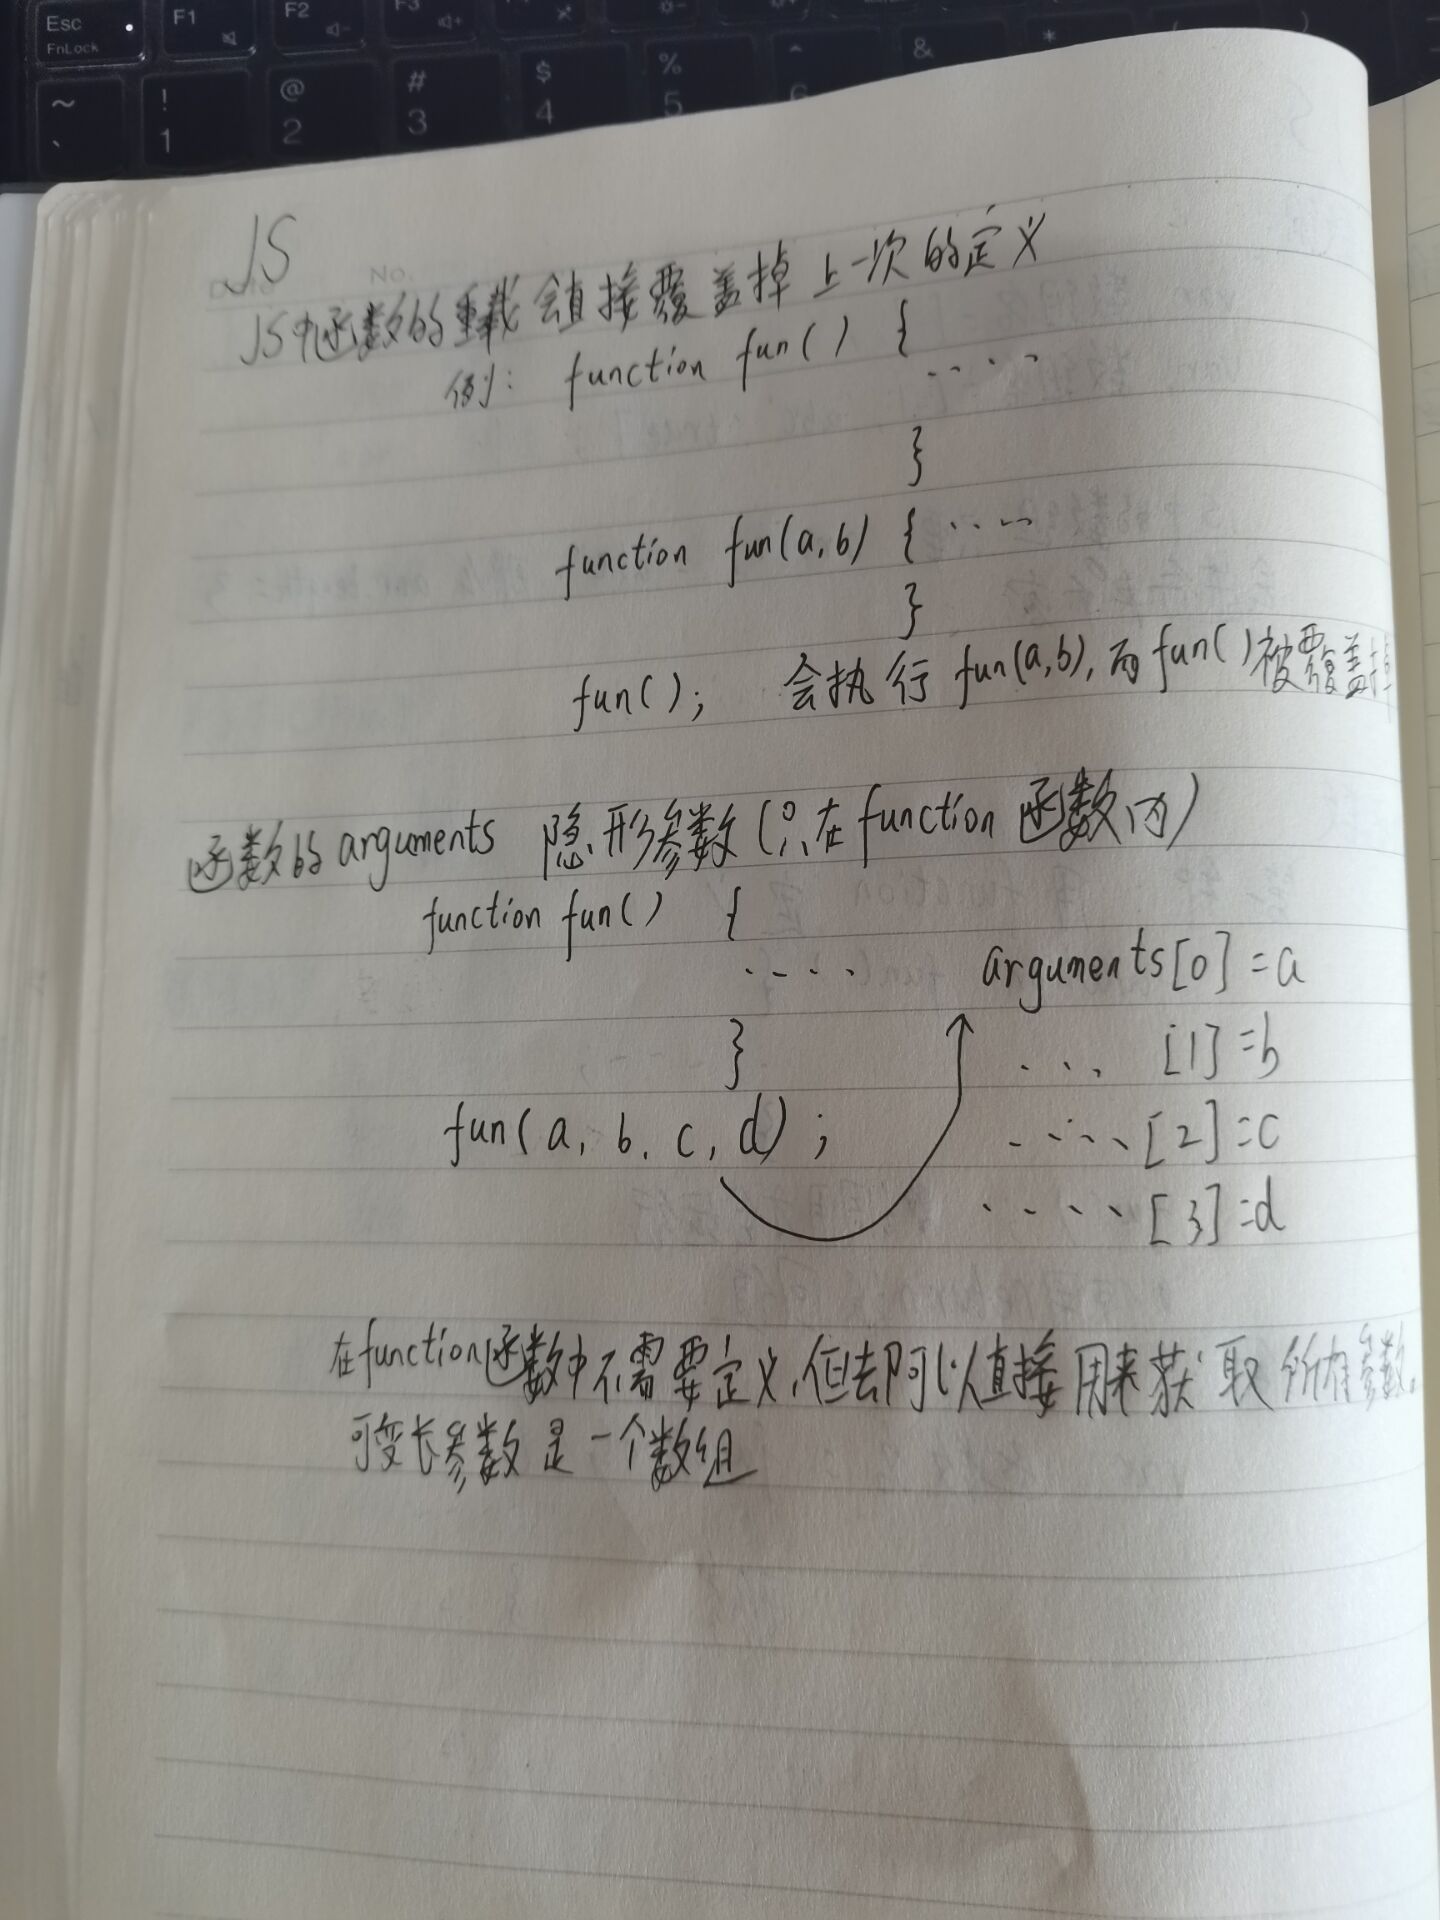 Esc
FnLock
F1
F2
F3
~
`
!
1
@
2
#
3
$
4
%
5
^
6
&
*
)
JS
No.
JS中函数的重载会直接覆盖掉上一次的定义
例: function fun() {
....
}
function fun(a,b) { ....
}
fun(); 会执行 fun(a,b), 而 fun() 被覆盖掉
函数的 arguments 隐形参数 (只在 function 函数内)
function fun() {
.... arguments[0] = a
} ... [1] = b
fun(a, b, c, d); .... [2] = c
.... [3] = d
在function函数中不需要定义,但却可以直接用来获取所有参数。
可变长参数是一个数组